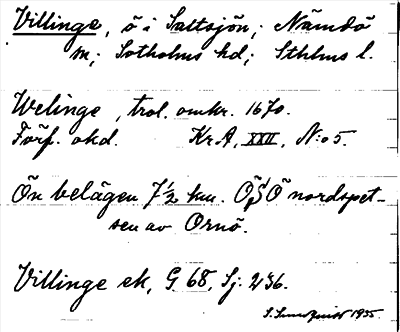 Villinge, ö i Saltsjön; Nämdö
sn; Sotholms hd; Sthlms l.
Welinge, trol. omkr. 1670.
Förf. okd. Kr.A, XXII, N:o 5.
Ön belägen 7½ km. OSO nordspet-
sen av Ornö.
Villinge ek, G. 68, Sj. 236.
S. Sundquist 1935.